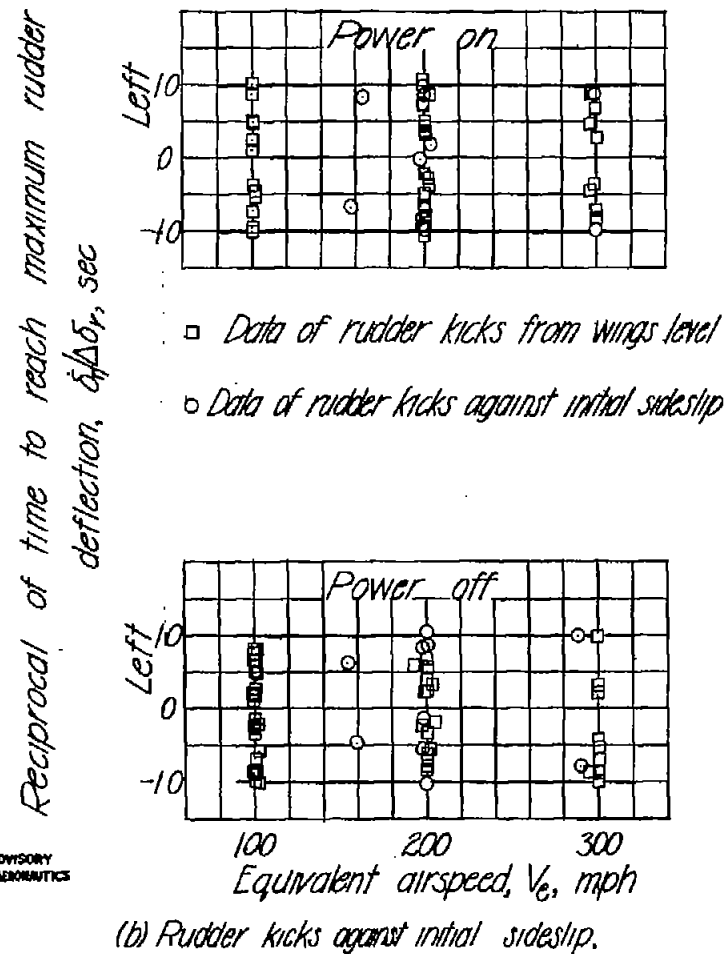 Reciprocal of time to reach maximum rudder
deflection, δ̇r/Δδr, sec
Power on
Left
10
0
-10
□ Data of rudder kicks from wings level
○ Data of rudder kicks against initial sideslip
Power off
Left
10
0
-10
100 200 300
Equivalent airspeed, Ve, mph
AERONAUTICS
(b) Rudder kicks against initial sideslip.